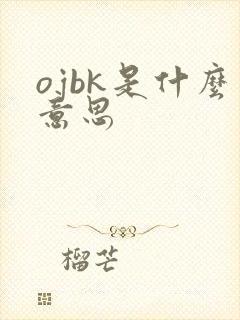 ojbk是什麼
意思
榴芒